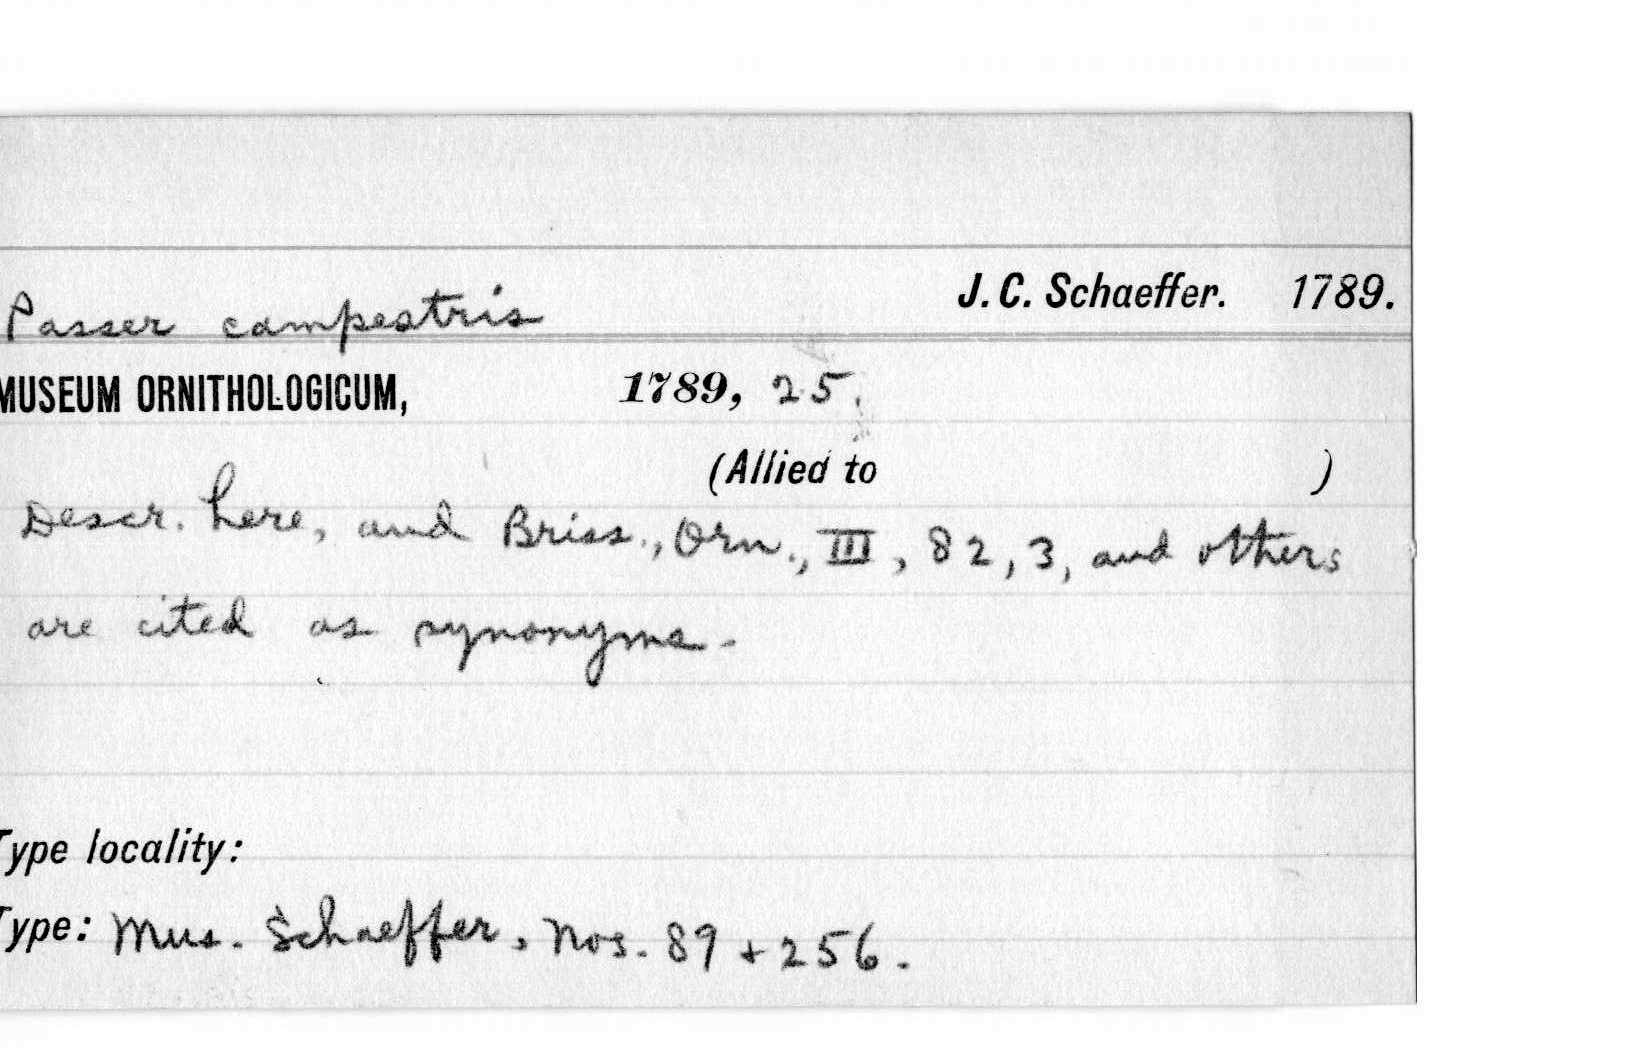 Passer campestris J. C. Schaeffer. 1789.
MUSEUM ORNITHOLOGICUM, 1789, 25.
(Allied to )
Descr. here, and Briss., Orn., III, 82, 3, and others
are cited as synonyms.
Type locality:
Type: Mus. Schaeffer, Nos. 89 + 256.